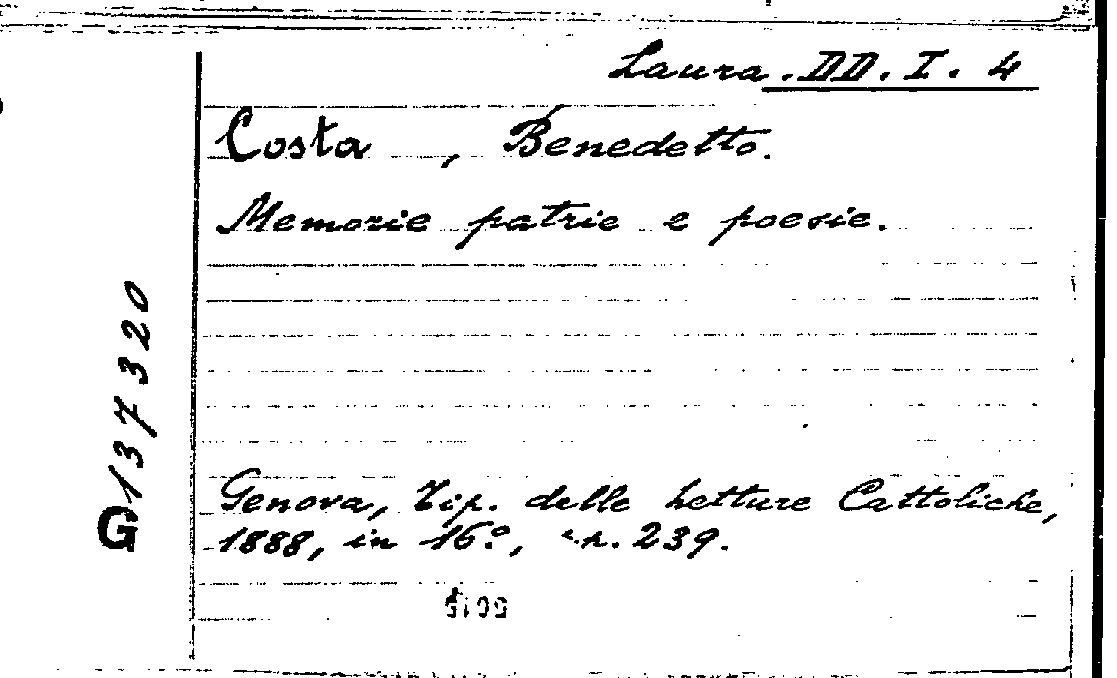 Laura. DD. I. 4
Costa, Benedetto.
Memorie patrie e poesie.
G 137320
Genova, Tip. delle Letture Cattoliche,
1888, in 16º, 239.